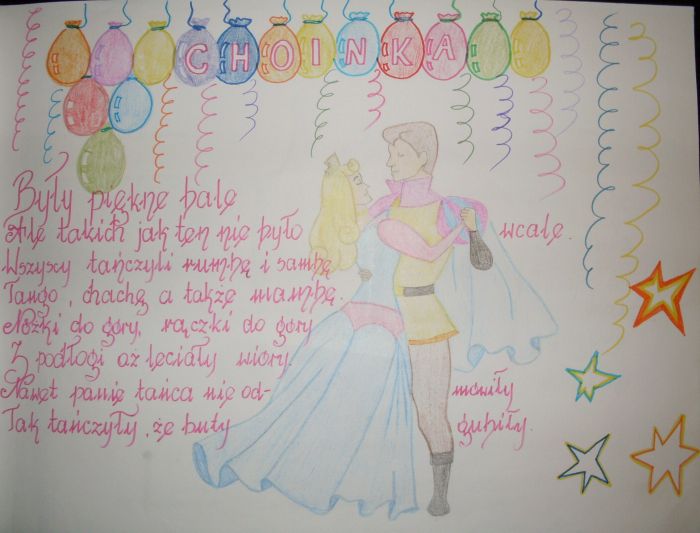 CHOINKA
Były piękne bale
Ale takich jak ten nie było wcale.
Wszyscy tańczyli rumbę i sambę
Tango, chachę a także mambę.
Nóżki do góry, rączki do góry
Z podłogi aż leciały wióry.
Nawet panie tańca nie od- mówiły
Tak tańczyły, że buty gubiły.